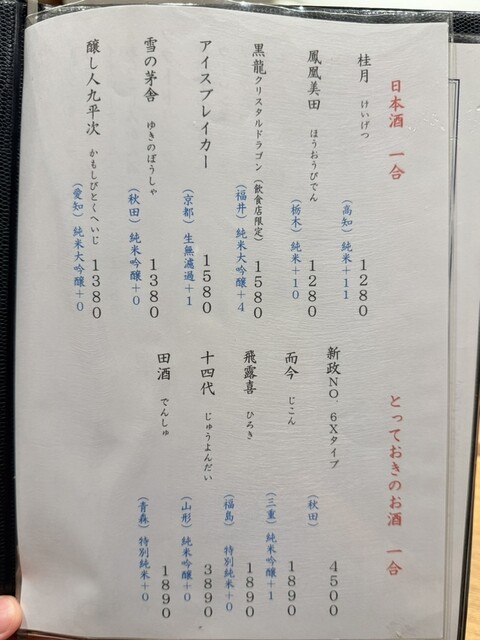 日本酒　一合
桂月　けいげつ　1280
（高知）純米＋11
鳳凰美田　ほうおうびでん　1280
（栃木）純米＋10
黒龍クリスタルドラゴン（飲食店限定）　1580
（福井）純米大吟醸＋4
アイスブレイカー　1580
（京都）生無濾過＋1
雪の茅舎　ゆきのぼうしゃ　1380
（秋田）純米吟醸＋0
醸し人九平次　かもしびとくへいじ　1380
（愛知）純米大吟醸＋0
とっておきのお酒　一合
新政NO．6Xタイプ　4500
（秋田）
而今　じこん　1890
（三重）純米吟醸＋1
飛露喜　ひろき　1890
（福島）特別純米＋0
十四代　じゅうよんだい　3890
（山形）純米吟醸＋0
田酒　でんしゅ　1890
（青森）特別純米＋0